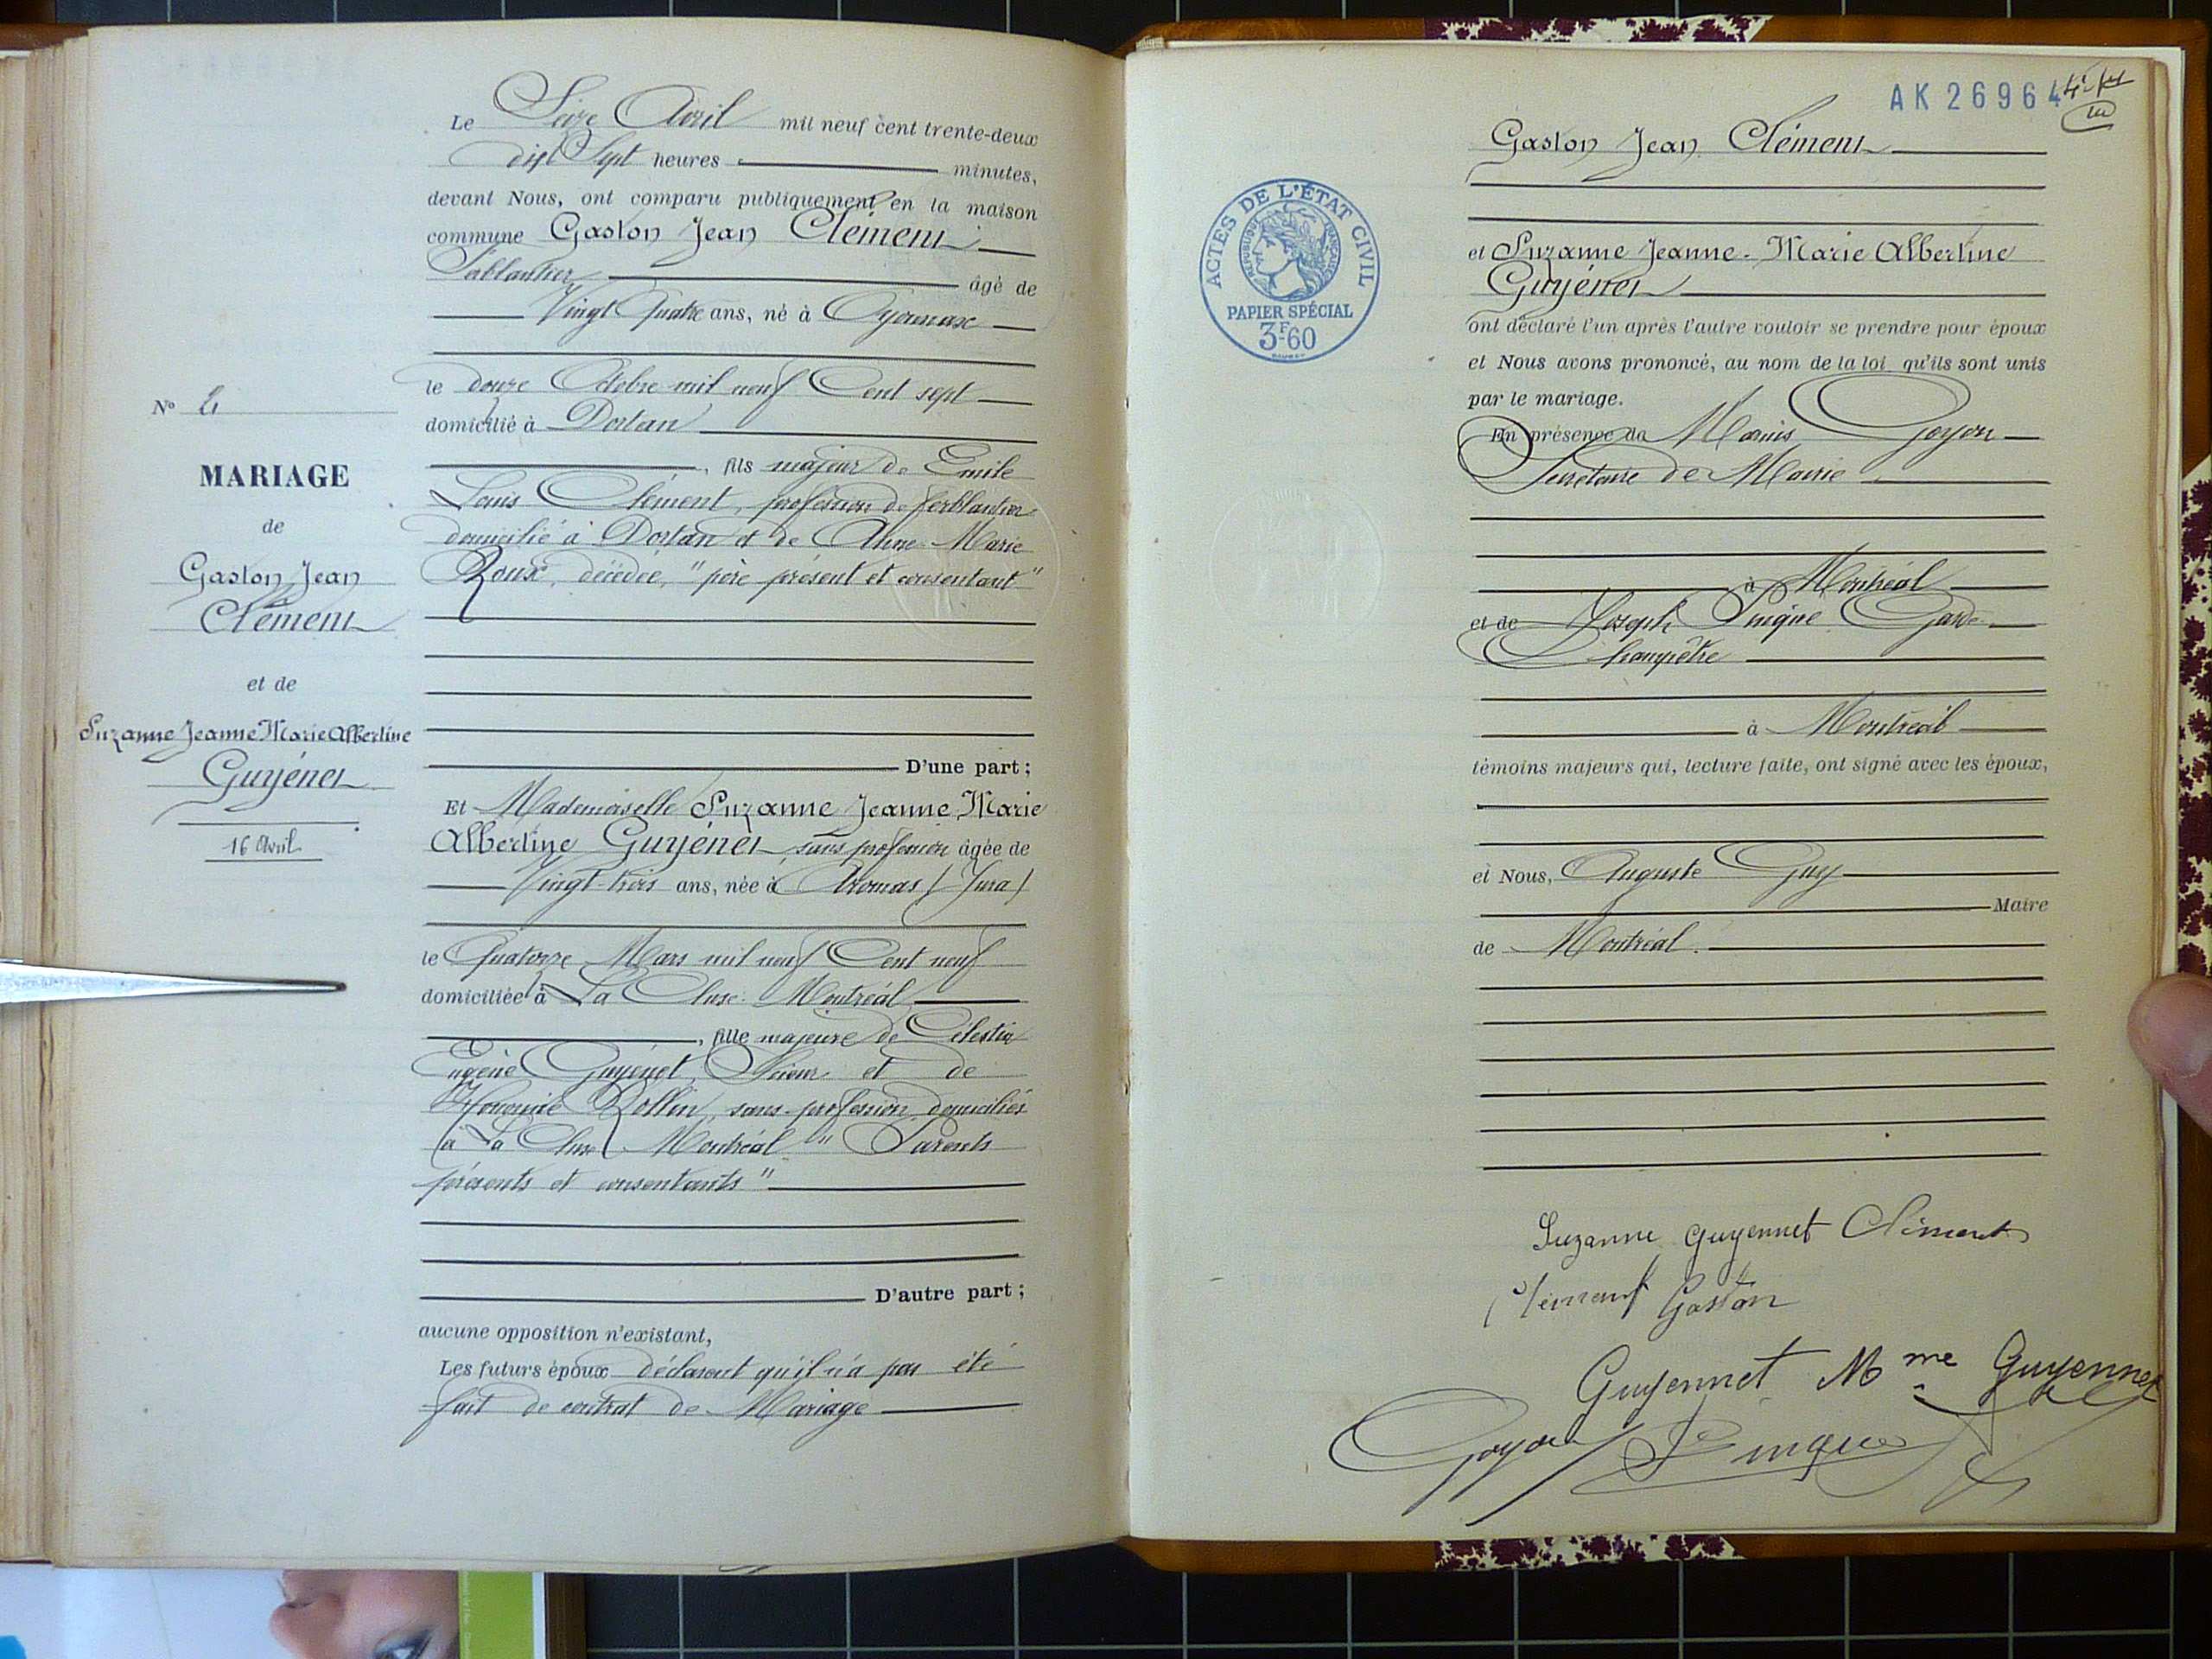 Le Seize Avril mil neuf cent trente-deux
dix Sept heures minutes,
devant Nous, ont comparu publiquement en la maison
commune Gaston Jean Clément
âgé de
Vingt Quatre ans, né à Oyonnax
le douze Octobre mil neuf Cent sept
domicilié à Dortan
, fils majeur de Emile
Louis Clément, profession de ferblantier
domicilié à Dortan et de Anne Marie
Roux, décédée, "père présent et consentant"
D'une part ;
Et Mademoiselle Suzanne Jeanne Marie
Albertine Guyénet sans profession âgée de
Vingt-trois ans, née à Aromas (Jura)
le Quatorze Mars mil neuf Cent neuf
domiciliée à La Cluse Montréal
, fille majeure de Célestin
Eugène Guyénet, Scieur et de
Rollin, sans profession, domiciliés
à La Cluse Montréal " Parents
présents et consentants "
D'autre part ;
aucune opposition n'existant,
Les futurs époux déclarent qu'il n'a pas été
fait de contrat de Mariage
N° 4
MARIAGE
de
Gaston Jean
Clément
et de
Suzanne Jeanne Marie Albertine
Guyénet
16 Avril
AK 26964
Gaston Jean Clément
et Suzanne Jeanne-Marie Albertine
Guyénet
ont déclaré l'un après l'autre vouloir se prendre pour époux
et Nous avons prononcé, au nom de la loi qu'ils sont unis
par le mariage.
En présence de Marius Goyon
Secrétaire de Mairie
à Montréal
et de Joseph Pingue Garde
Champêtre
à Montréal
témoins majeurs qui, lecture faite, ont signé avec les époux,
et Nous, Auguste Guy
Maire
de Montréal.
ACTES DE L'ÉTAT CIVIL
RÉPUBLIQUE FRANÇAISE
PAPIER SPÉCIAL
3F60
Suzanne Guyennet Clément
Clément Gaston
Guyennet Mme Guyennet
Goyon Pingue